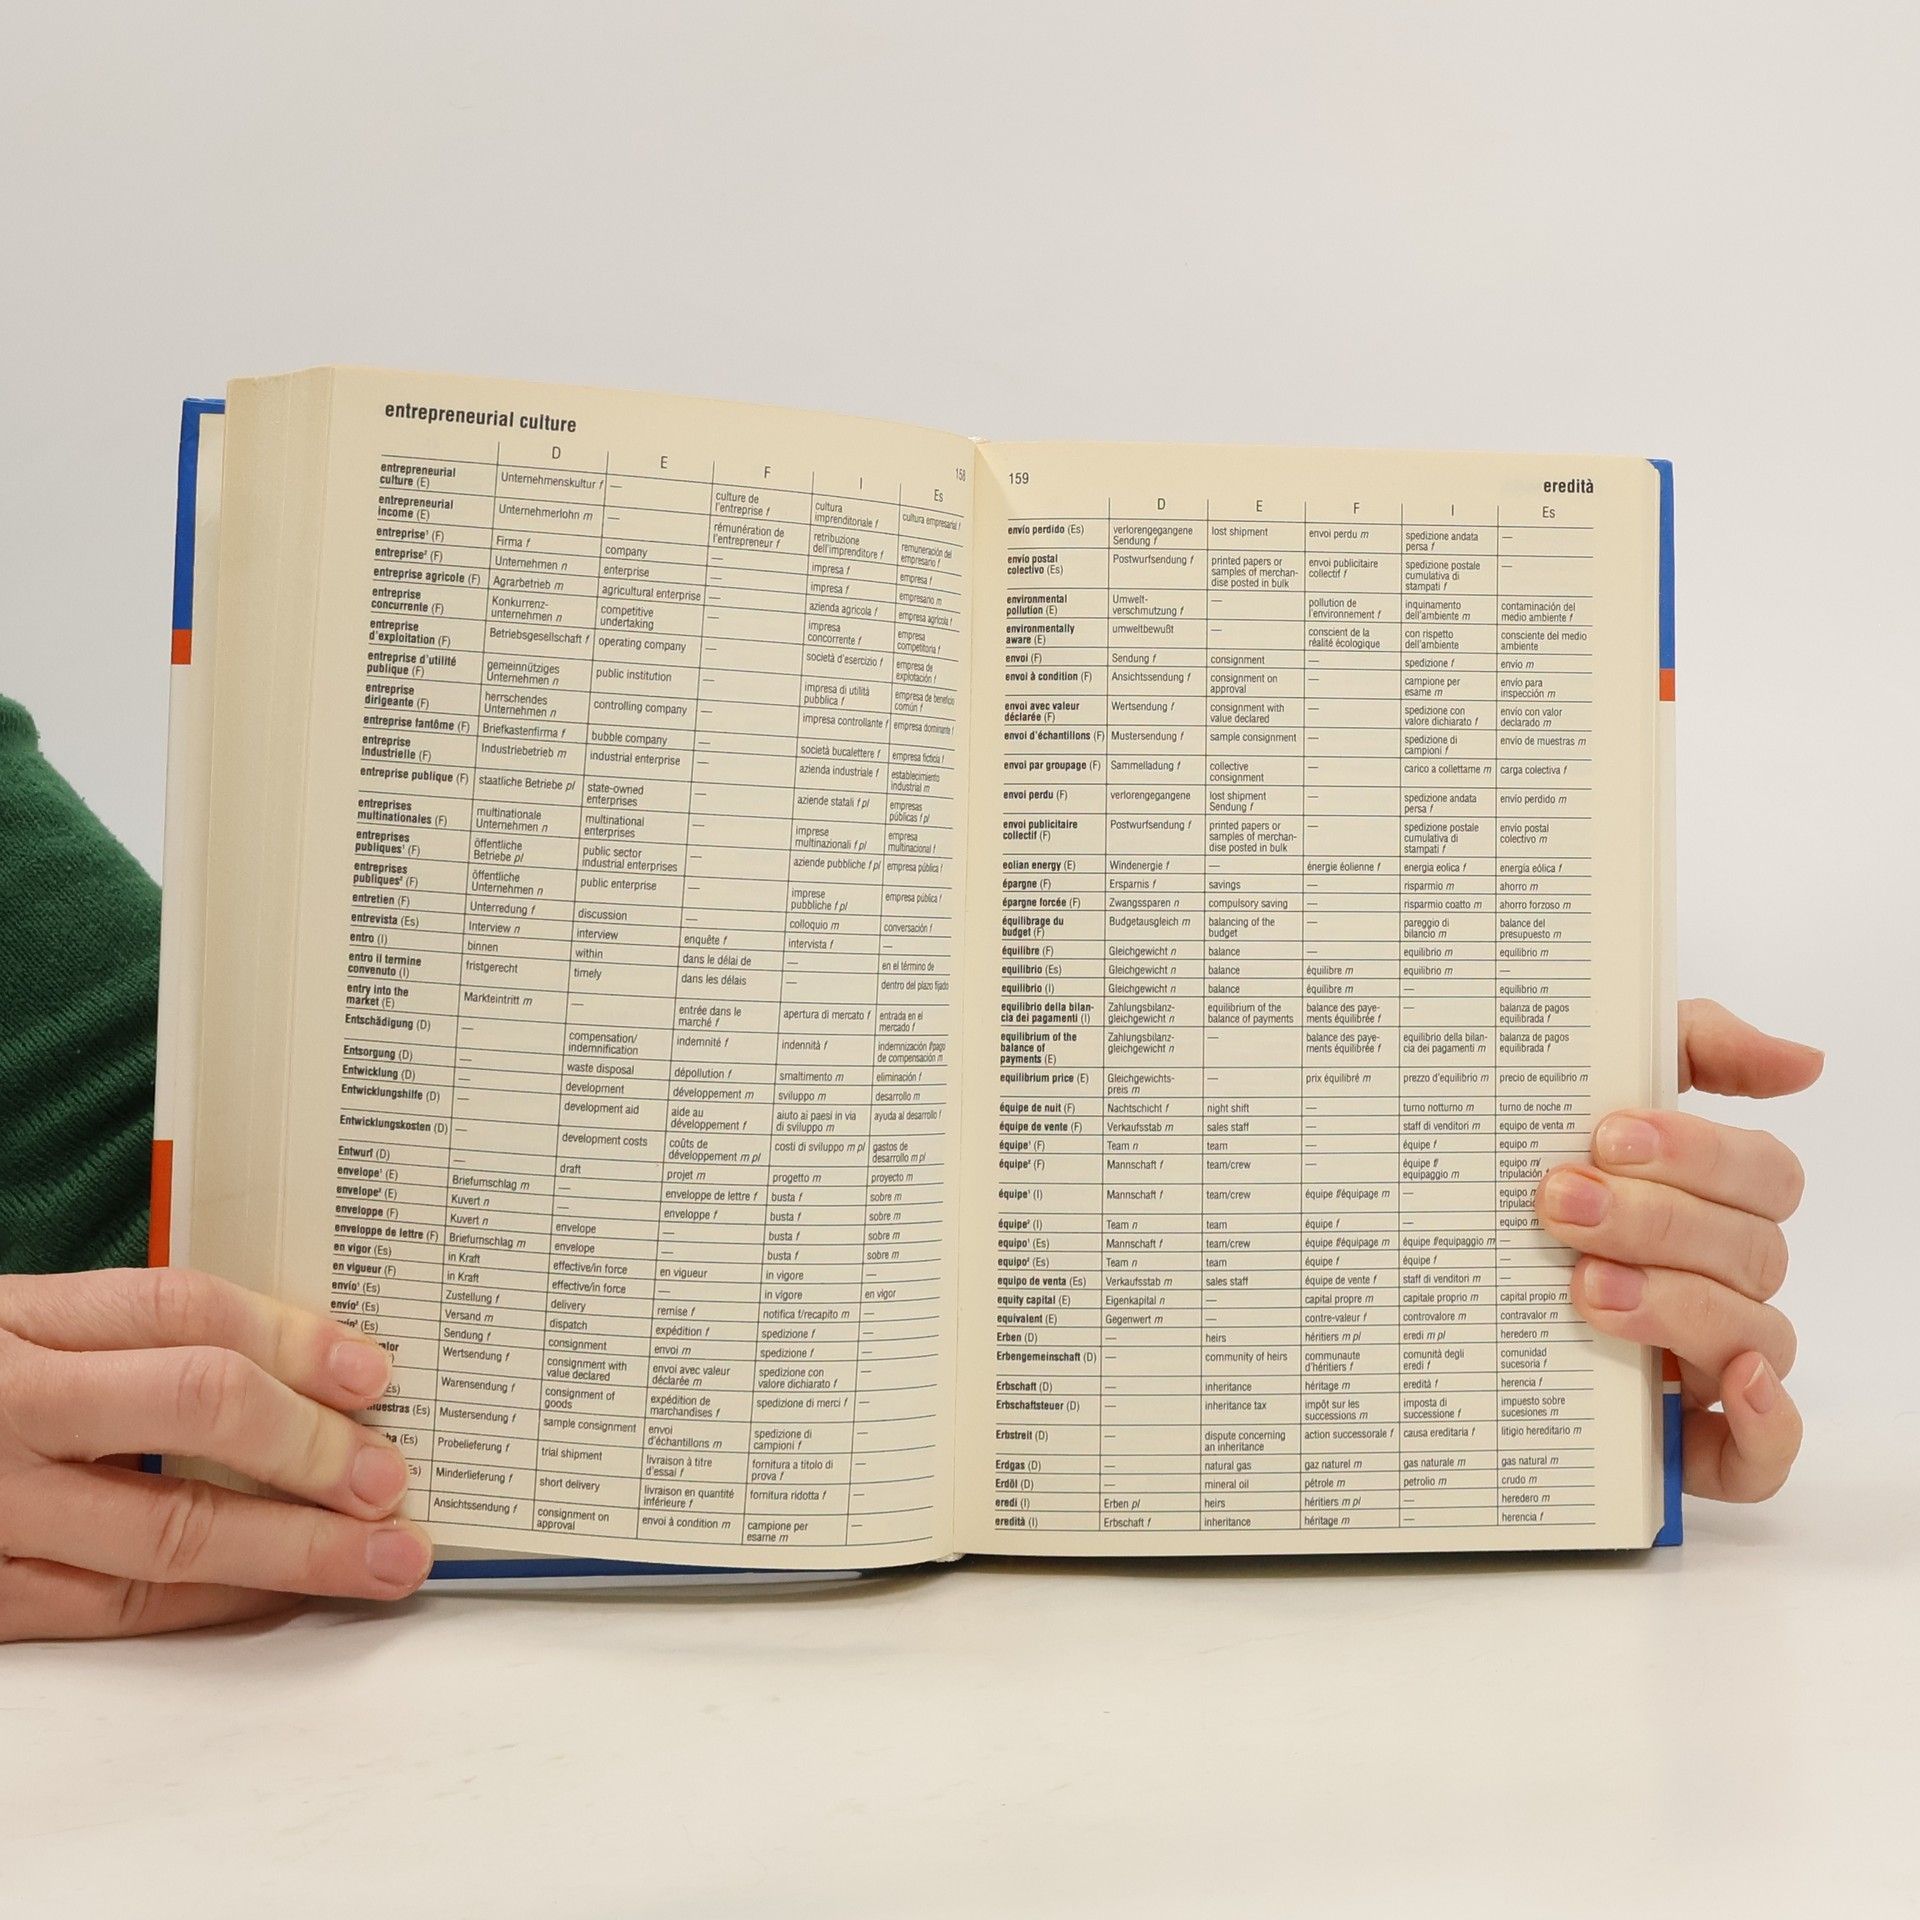 entrepreneurial culture
158
D E F I Es
entrepreneurial culture (E) Unternehmenskultur f — culture de l'entreprise f cultura imprenditoriale f cultura empresarial f
entrepreneurial income (E) Unternehmerlohn m — rémunération de l'entrepreneur f retribuzione dell'imprenditore f remuneración del empresario f
entreprise¹ (F) Firma f company — impresa f empresa f
entreprise² (F) Unternehmen n enterprise — impresa f empresario m
entreprise agricole (F) Agrarbetrieb m agricultural enterprise — azienda agricola f empresa agrícola f
entreprise concurrente (F) Konkurrenz-unternehmen n competitive undertaking — impresa concorrente f empresa competitoria f
entreprise d'exploitation (F) Betriebsgesellschaft f operating company — società d'esercizio f empresa de explotación f
entreprise d'utilité publique (F) gemeinnütziges Unternehmen n public institution — impresa di utilità pubblica f empresa de beneficio común f
entreprise dirigeante (F) herrschendes Unternehmen n controlling company — impresa controllante f empresa dominante f
entreprise fantôme (F) Briefkastenfirma f bubble company — società bucalettere f empresa ficticia f
entreprise industrielle (F) Industriebetrieb m industrial enterprise — azienda industriale f establecimiento industrial m
entreprise publique (F) staatliche Betriebe pl state-owned enterprises — aziende statali f pl empresas públicas f pl
entreprises multinationales (F) multinationale Unternehmen n multinational enterprises — imprese multinazionali f pl empresa multinacional f
entreprises publiques¹ (F) öffentliche Betriebe pl public sector industrial enterprises — aziende pubbliche f pl empresa pública f
entreprises publiques² (F) öffentliche Unternehmen n public enterprise — imprese pubbliche f pl empresa pública f
entretien (F) Unterredung f discussion — colloquio m conversación f
entrevista (Es) Interview n interview enquête f intervista f —
entro (I) binnen within dans le délai de — en el término de
entro il termine convenuto (I) fristgerecht timely dans les délais — dentro del plazo fijado
entry into the market (E) Markteintritt m — entrée dans le marché f apertura di mercato f entrada en el mercado f
Entschädigung (D) — compensation/ indemnification indemnité f indennità f indemnización f/pago de compensación m
Entsorgung (D) — waste disposal dépollution f smaltimento m eliminación f
Entwicklung (D) — development développement m sviluppo m desarrollo m
Entwicklungshilfe (D) — development aid aide au développement f aiuto ai paesi in via di sviluppo m ayuda al desarrollo f
Entwicklungskosten (D) — development costs coûts de développement m pl costi di sviluppo m pl gastos de desarrollo m pl
Entwurf (D) — draft projet m progetto m proyecto m
envelope¹ (E) Briefumschlag m — enveloppe de lettre f busta f sobre m
envelope² (E) Kuvert n — enveloppe f busta f sobre m
enveloppe (F) Kuvert n envelope — busta f sobre m
enveloppe de lettre (F) Briefumschlag m envelope — busta f sobre m
en vigor (Es) in Kraft effective/in force en vigueur in vigore —
en vigueur (F) in Kraft effective/in force — in vigore en vigor
envío¹ (Es) Zustellung f delivery remise f notifica f/recapito m —
envío² (Es) Versand m dispatch expédition f spedizione f —
(Es) Sendung f consignment envoi m spedizione f —
Wertsendung f consignment with value declared envoi avec valeur déclarée m spedizione con valore dichiarato f —
Warensendung f consignment of goods expédition de marchandises f spedizione di merci f —
(Es) Mustersendung f sample consignment envoi d'échantillons m spedizione di campioni f —
(Es) Probelieferung f trial shipment livraison à titre d'essai f fornitura a titolo di prova f —
Minderlieferung f short delivery livraison en quantité intérieure f fornitura ridotta f —
Ansichtssendung f consignment on approval envoi à condition m campione per esame m —
159
eredità
D E F I Es
envío perdido (Es) verlorengegangene Sendung f lost shipment envoi perdu m spedizione andata persa f —
envío postal colectivo (Es) Postwurfsendung f printed papers or samples of merchan-dise posted in bulk envoi publicitaire collectif f spedizione postale cumulativa di stampati f —
environmental pollution (E) Umwelt-verschmutzung f — pollution de l'environnement f inquinamento dell'ambiente m contaminación del medio ambiente f
environmentally aware (E) umweltbewußt — conscient de la réalité écologique con rispetto dell'ambiente consciente del medio ambiente
envoi (F) Sendung f consignment — spedizione f envío m
envoi à condition (F) Ansichtssendung f consignment on approval — campione per esame m envío para inspección m
envoi avec valeur déclarée (F) Wertsendung f consignment with value declared — spedizione con valore dichiarato f envío con valor declarado m
envoi d'échantillons (F) Mustersendung f sample consignment — spedizione di campioni f envío de muestras m
envoi par groupage (F) Sammelladung f collective consignment — carico a collettame m carga colectiva f
envoi perdu (F) verlorengegangene lost shipment Sendung f — spedizione andata persa f envío perdido m
envoi publicitaire collectif (F) Postwurfsendung f printed papers or samples of merchan-dise posted in bulk — spedizione postale cumulativa di stampati f envío postal colectivo m
eolian energy (E) Windenergie f — énergie éolienne f energia eolica f energía eólica f
épargne (F) Ersparnis f savings — risparmio m ahorro m
épargne forcée (F) Zwangssparen n compulsory saving — risparmio coatto m ahorro forzoso m
équilibrage du budget (F) Budgetausgleich m balancing of the budget — pareggio di bilancio m balance del presupuesto m
équilibre (F) Gleichgewicht n balance — equilibrio m equilibrio m
equilibrio (Es) Gleichgewicht n balance équilibre m equilibrio m —
equilibrio (I) Gleichgewicht n balance équilibre m — equilibrio m
equilibrio della bilan-cia dei pagamenti (I) Zahlungsbilanz-gleichgewicht n equilibrium of the balance of payments balance des paye-ments équilibrée f — balanza de pagos equilibrada f
equilibrium of the balance of payments (E) Zahlungsbilanz-gleichgewicht n — balance des paye-ments équilibrée f equilibrio della bilan-cia dei pagamenti m balanza de pagos equilibrada f
equilibrium price (E) Gleichgewichts-preis m — prix équilibré m prezzo d'equilibrio m precio de equilibrio m
équipe de nuit (F) Nachtschicht f night shift — turno notturno m turno de noche m
équipe de vente (F) Verkaufsstab m sales staff — staff di venditori m equipo de venta m
équipe¹ (F) Team n team — équipe f equipo m
équipe² (F) Mannschaft f team/crew — équipe f/ equipaggio m equipo m/ tripulación
équipe¹ (I) Mannschaft f team/crew équipe f/équipage m — equipo
équipe² (I) Team n team équipe f — equipo m
equipo¹ (Es) Mannschaft f team/crew équipe f/équipage m équipe f/equipaggio m —
equipo² (Es) Team n team équipe f équipe f —
equipo de venta (Es) Verkaufsstab m sales staff équipe de vente f staff di venditori m —
equity capital (E) Eigenkapital n — capital propre m capitale proprio m capital propio m
equivalent (E) Gegenwert m — contre-valeur f controvalore m contravalor m
Erben (D) — heirs héritiers m pl eredi m pl heredero m
Erbengemeinschaft (D) — community of heirs communaute d'héritiers f comunità degli eredi f comunidad sucesoria f
Erbschaft (D) — inheritance héritage m eredità f herencia f
Erbschaftsteuer (D) — inheritance tax impôt sur les successions m imposta di successione f impuesto sobre sucesiones m
Erbstreit (D) — dispute concerning an inheritance action successorale f causa ereditaria f litigio hereditario m
Erdgas (D) — natural gas gaz naturel m gas naturale m gas natural m
Erdöl (D) — mineral oil pétrole m petrolio m crudo m
eredi (I) Erben pl heirs héritiers m pl — heredero m
eredità (I) Erbschaft f inheritance héritage m — herencia f